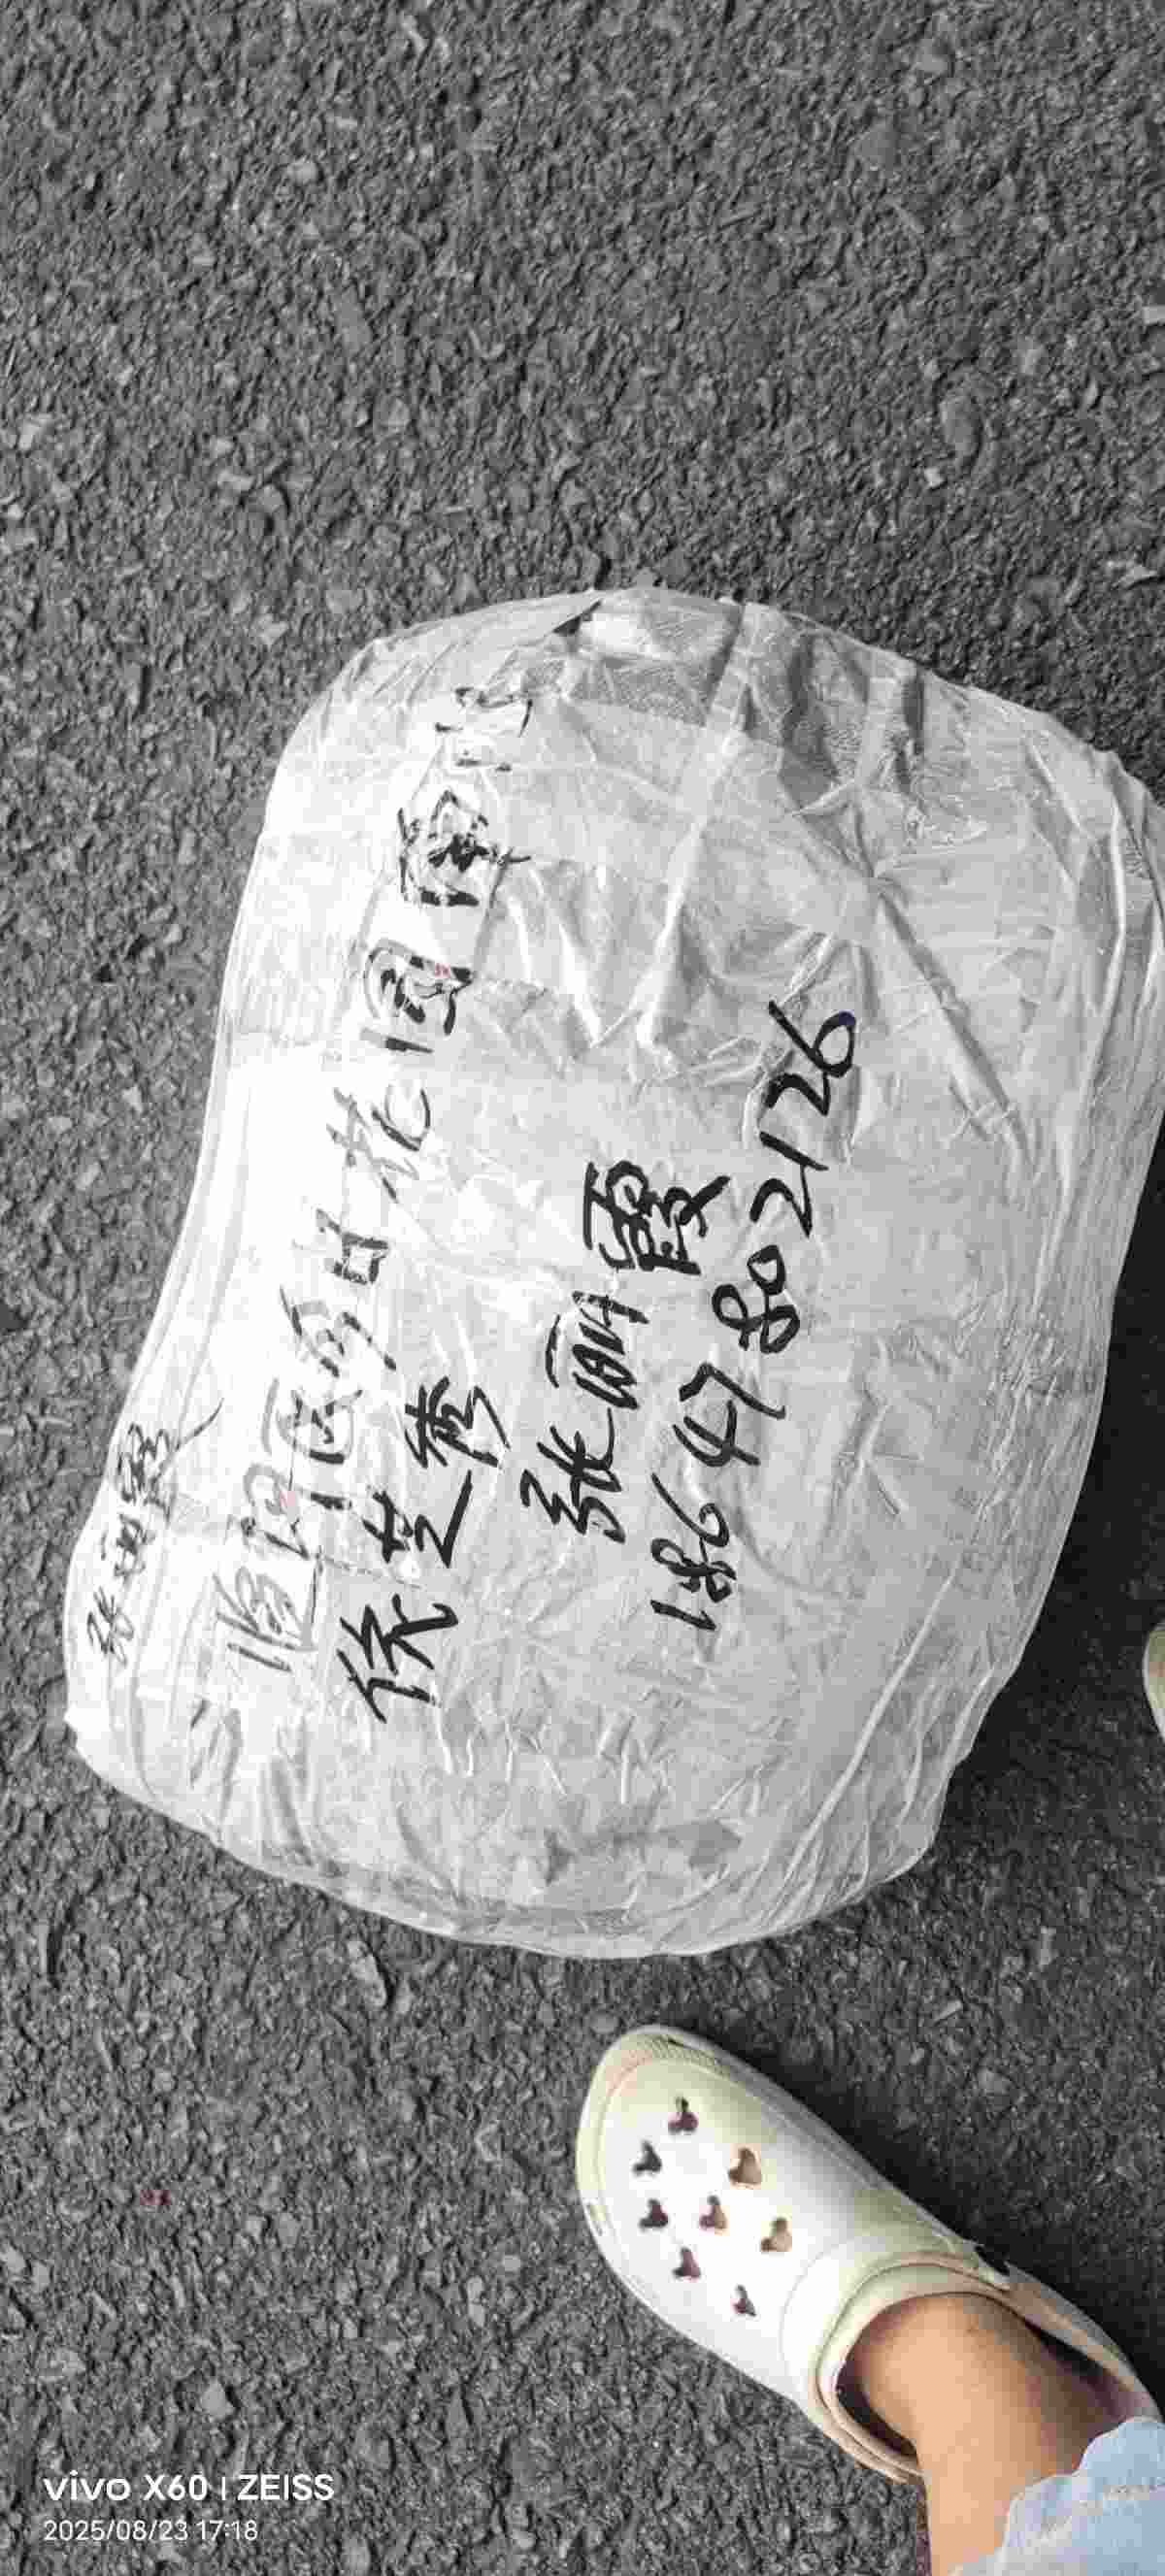 张丽霞
临河区向日花园
徐芝秀
张丽霞
18647802126
vivo X60 | ZEISS
2025/08/23 17:18